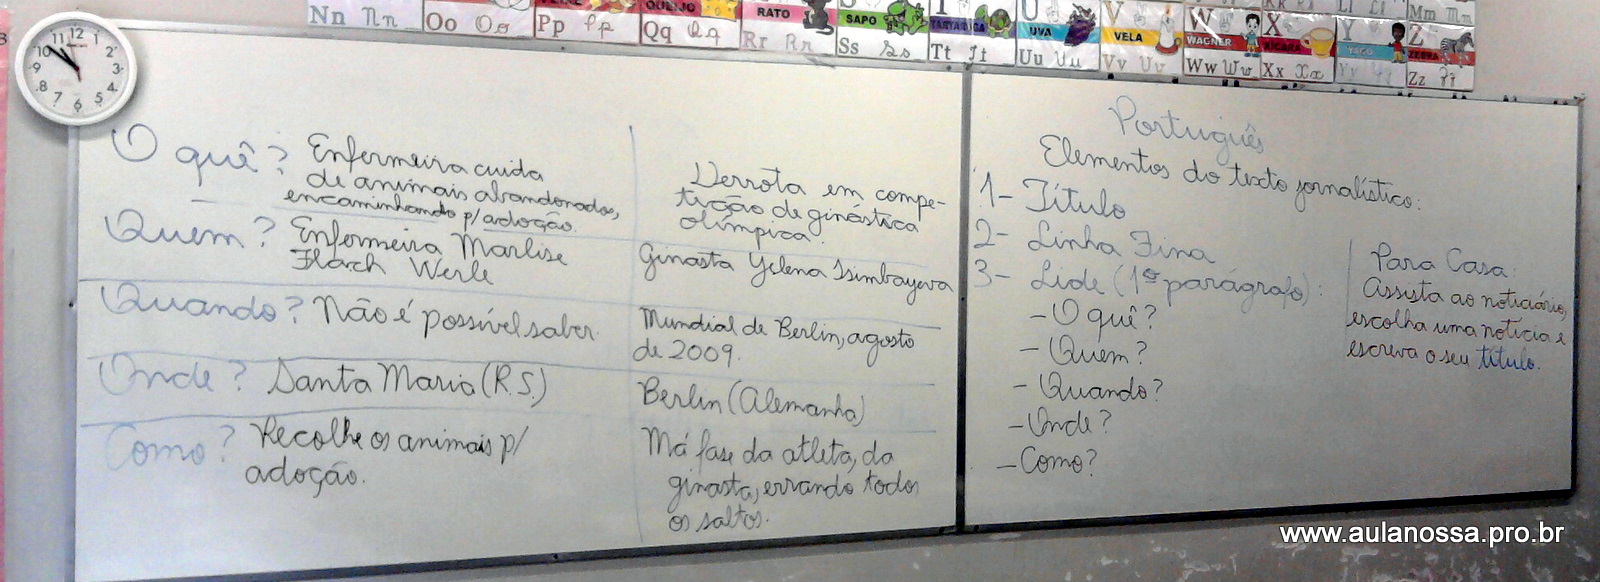 Nn Nn
Oo Oo
Pp Pp
QUEIJO
Qq Qq
RATO
Rr Rr
SAPO
Ss Ss
TARTARUGA
Tt Tt
U
UVA
Uu Uu
V
VELA
Vv Vv
W
WAGNER
Ww Ww
X
XICARA
Xx Xx
Y
YAGO
Yy Yy
Mm Mm
Z
ZEBRA
Zz
11 12 1
10 2
9 3
8 4
7 6 5
O quê? Enfermeira cuida
de animais abandonados,
encaminhando p/ adoção.
Quem? Enfermeira Marlise
Flach Werle
Quando? Não é possível saber.
Onde? Santa Maria (R.S.)
Como? Recolhe os animais p/
adoção.
Derrota em compe-
tição de ginástica
olímpica.
Ginasta Yelena Isimbayeva
Mundial de Berlin, agosto
de 2009.
Berlin (Alemanha)
Má fase da atleta, da
ginasta, errando todos
os saltos.
Português
Elementos do texto jornalístico:
1- Título
2- Linha Fina
3- Lide (1º parágrafo):
- O quê?
- Quem?
- Quando?
- Onde?
- Como?
Para Casa:
Assista ao noticiário,
escolha uma notícia e
escreva o seu título.
www.aulanossa.pro.br